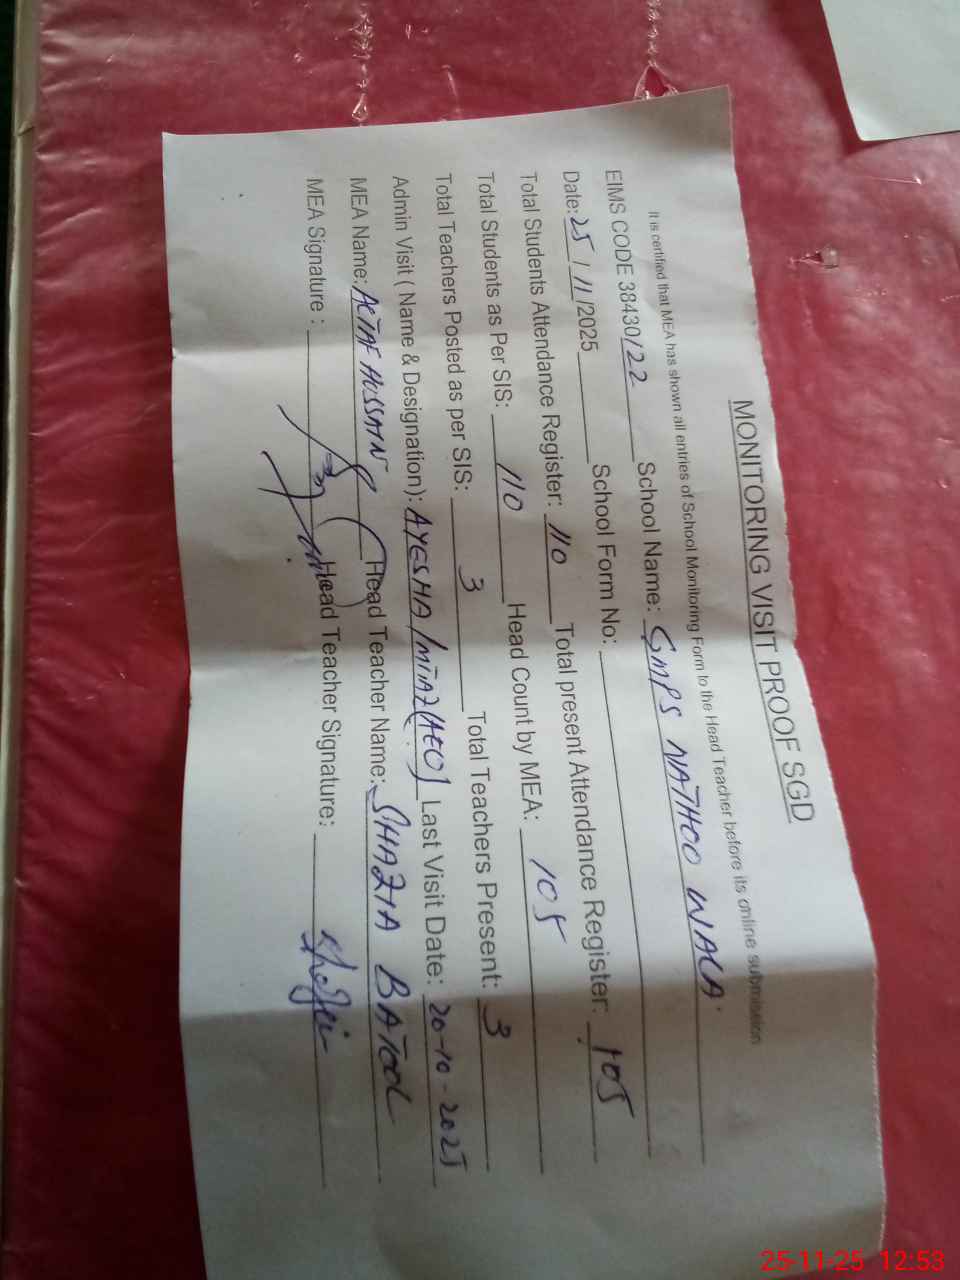 MONITORING VISIT PROOF SGD
It is certified that MEA has shown all entries of School Monitoring Form to the Head Teacher before its online submission
EIMS CODE 38430122 School Name: GMPS NATHOO WALA.
Date: 25/11/2025 School Form No:
Total Students Attendance Register: 110 Total present Attendance Register: 105
Total Students as Per SIS: 110 Head Count by MEA: 105
Total Teachers Posted as per SIS: 3 Total Teachers Present: 3
Admin Visit ( Name & Designation): AYESHA IMTIAZ (AEO) Last Visit Date: 20-10-2025
MEA Name: ALTAF HUSSAIN Head Teacher Name: SHAZIA BATOOL
MEA Signature : Head Teacher Signature:
25-11-25 12:53